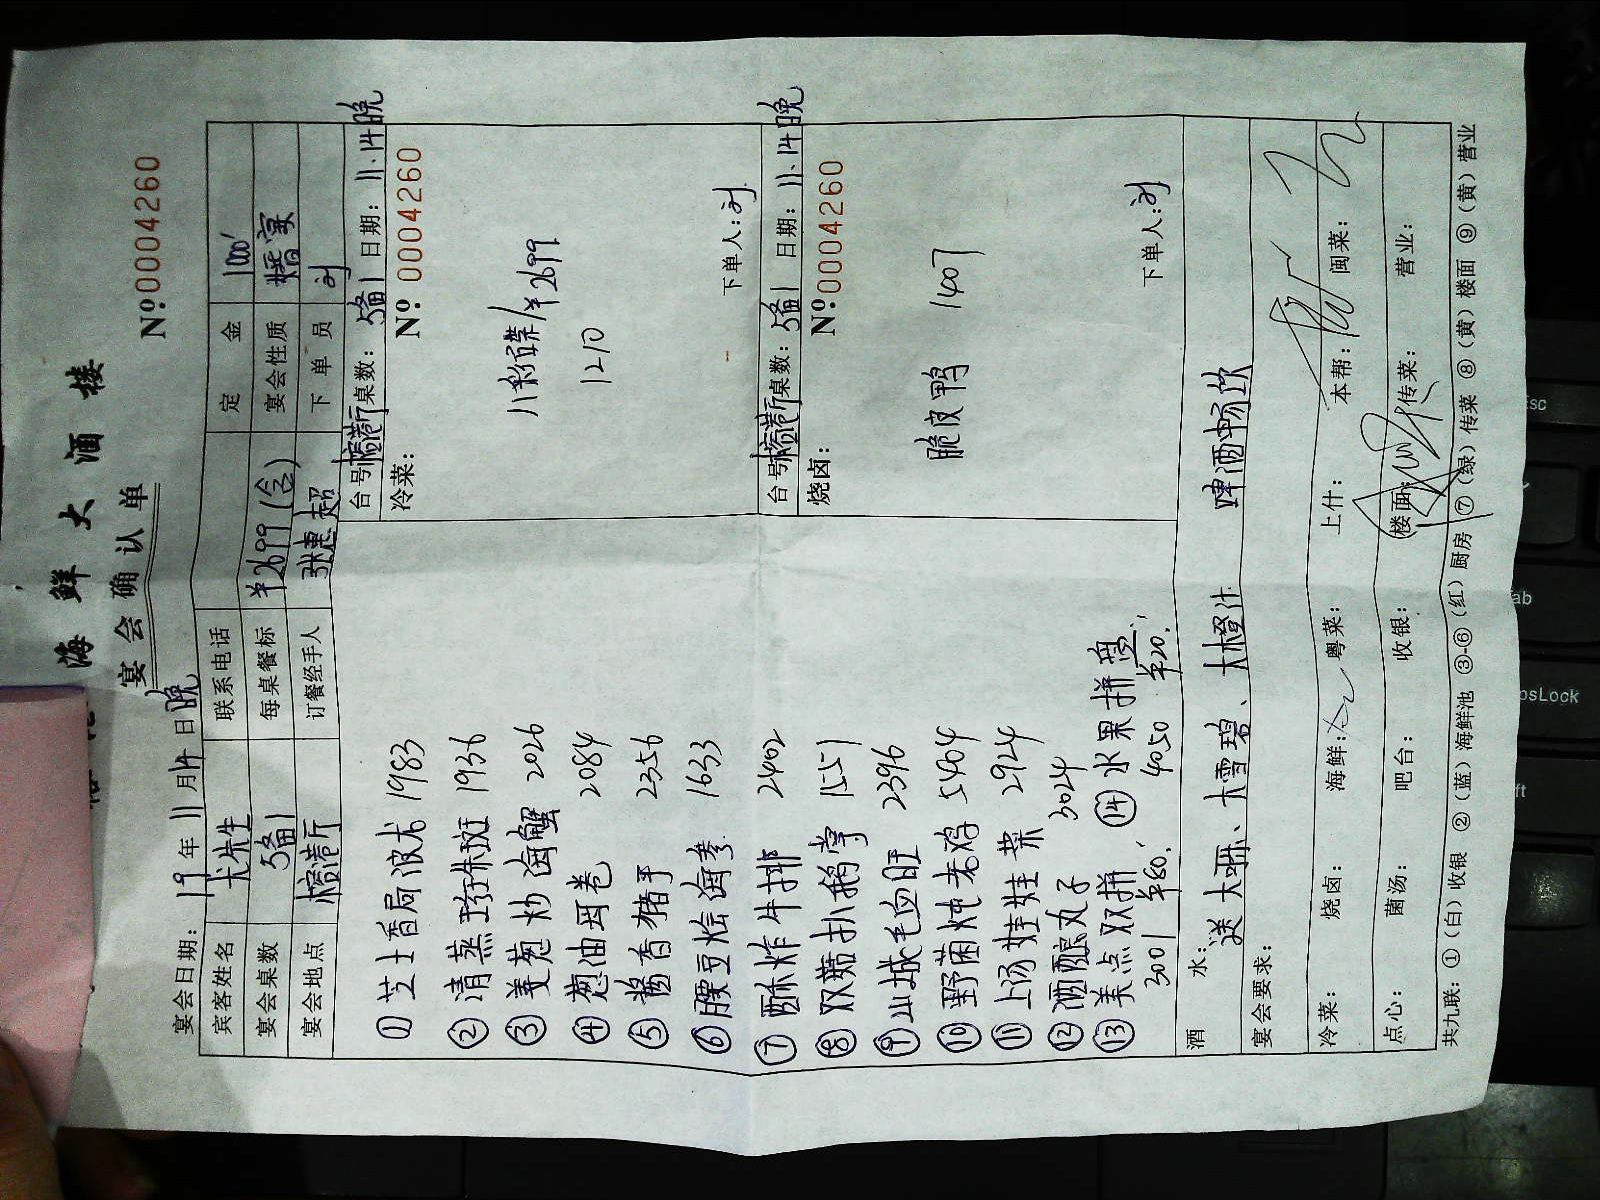 海鲜大酒楼
宴会确认单
Nº:0004260
宴会日期: 19年11月14日晚
宾客姓名 尤先生 联系电话 定金 1000
宴会桌数 5备1 每桌餐标 ¥2699(含) 宴会性质
宴会地点 订餐经手人 张惠超 下单员 刘
① 芝士香局波龙 1983
② 清蒸珍珠斑 1936
③ 姜葱炒海蟹 2026
④ 葱油母卷 2084
⑤ 酱香猪手 2356
⑥ 腰豆烩海参 1633
⑦ 酥炸牛排 2402
⑧ 双菇扒鹅掌 1557
⑨ 山城毛血旺 2396
⑩ 野菌炖老鸡 5404
⑪ 上汤娃娃菜 2924
⑫ 酒酿丸子 3024
⑬ 美点双拼 ⑭ 水果拼盘
3001 ¥80. 4050 ¥20.
台号 桌数: 5备1 日期: 11.14晚
冷菜: Nº: 0004260
八彩碟/¥2699
1210
下单人:刘
台号 桌数: 5备1 日期: 11.14晚
烧卤: Nº:0004260
脆皮鸭 1407
下单人:刘
酒水: 送大可乐、大雪碧、大橙汁 啤酒畅饮
宴会要求:
冷菜: 烧卤: 海鲜: 粤菜: 上什: 本帮: 闽菜:
点心: 菌汤: 吧台: 收银: 楼面: 传菜: 营业:
共九联: ①(白)收银 ②(蓝)海鲜池 ③-⑥(红)厨房 ⑦(绿)传菜 ⑧(黄)楼面 ⑨(黄)营业